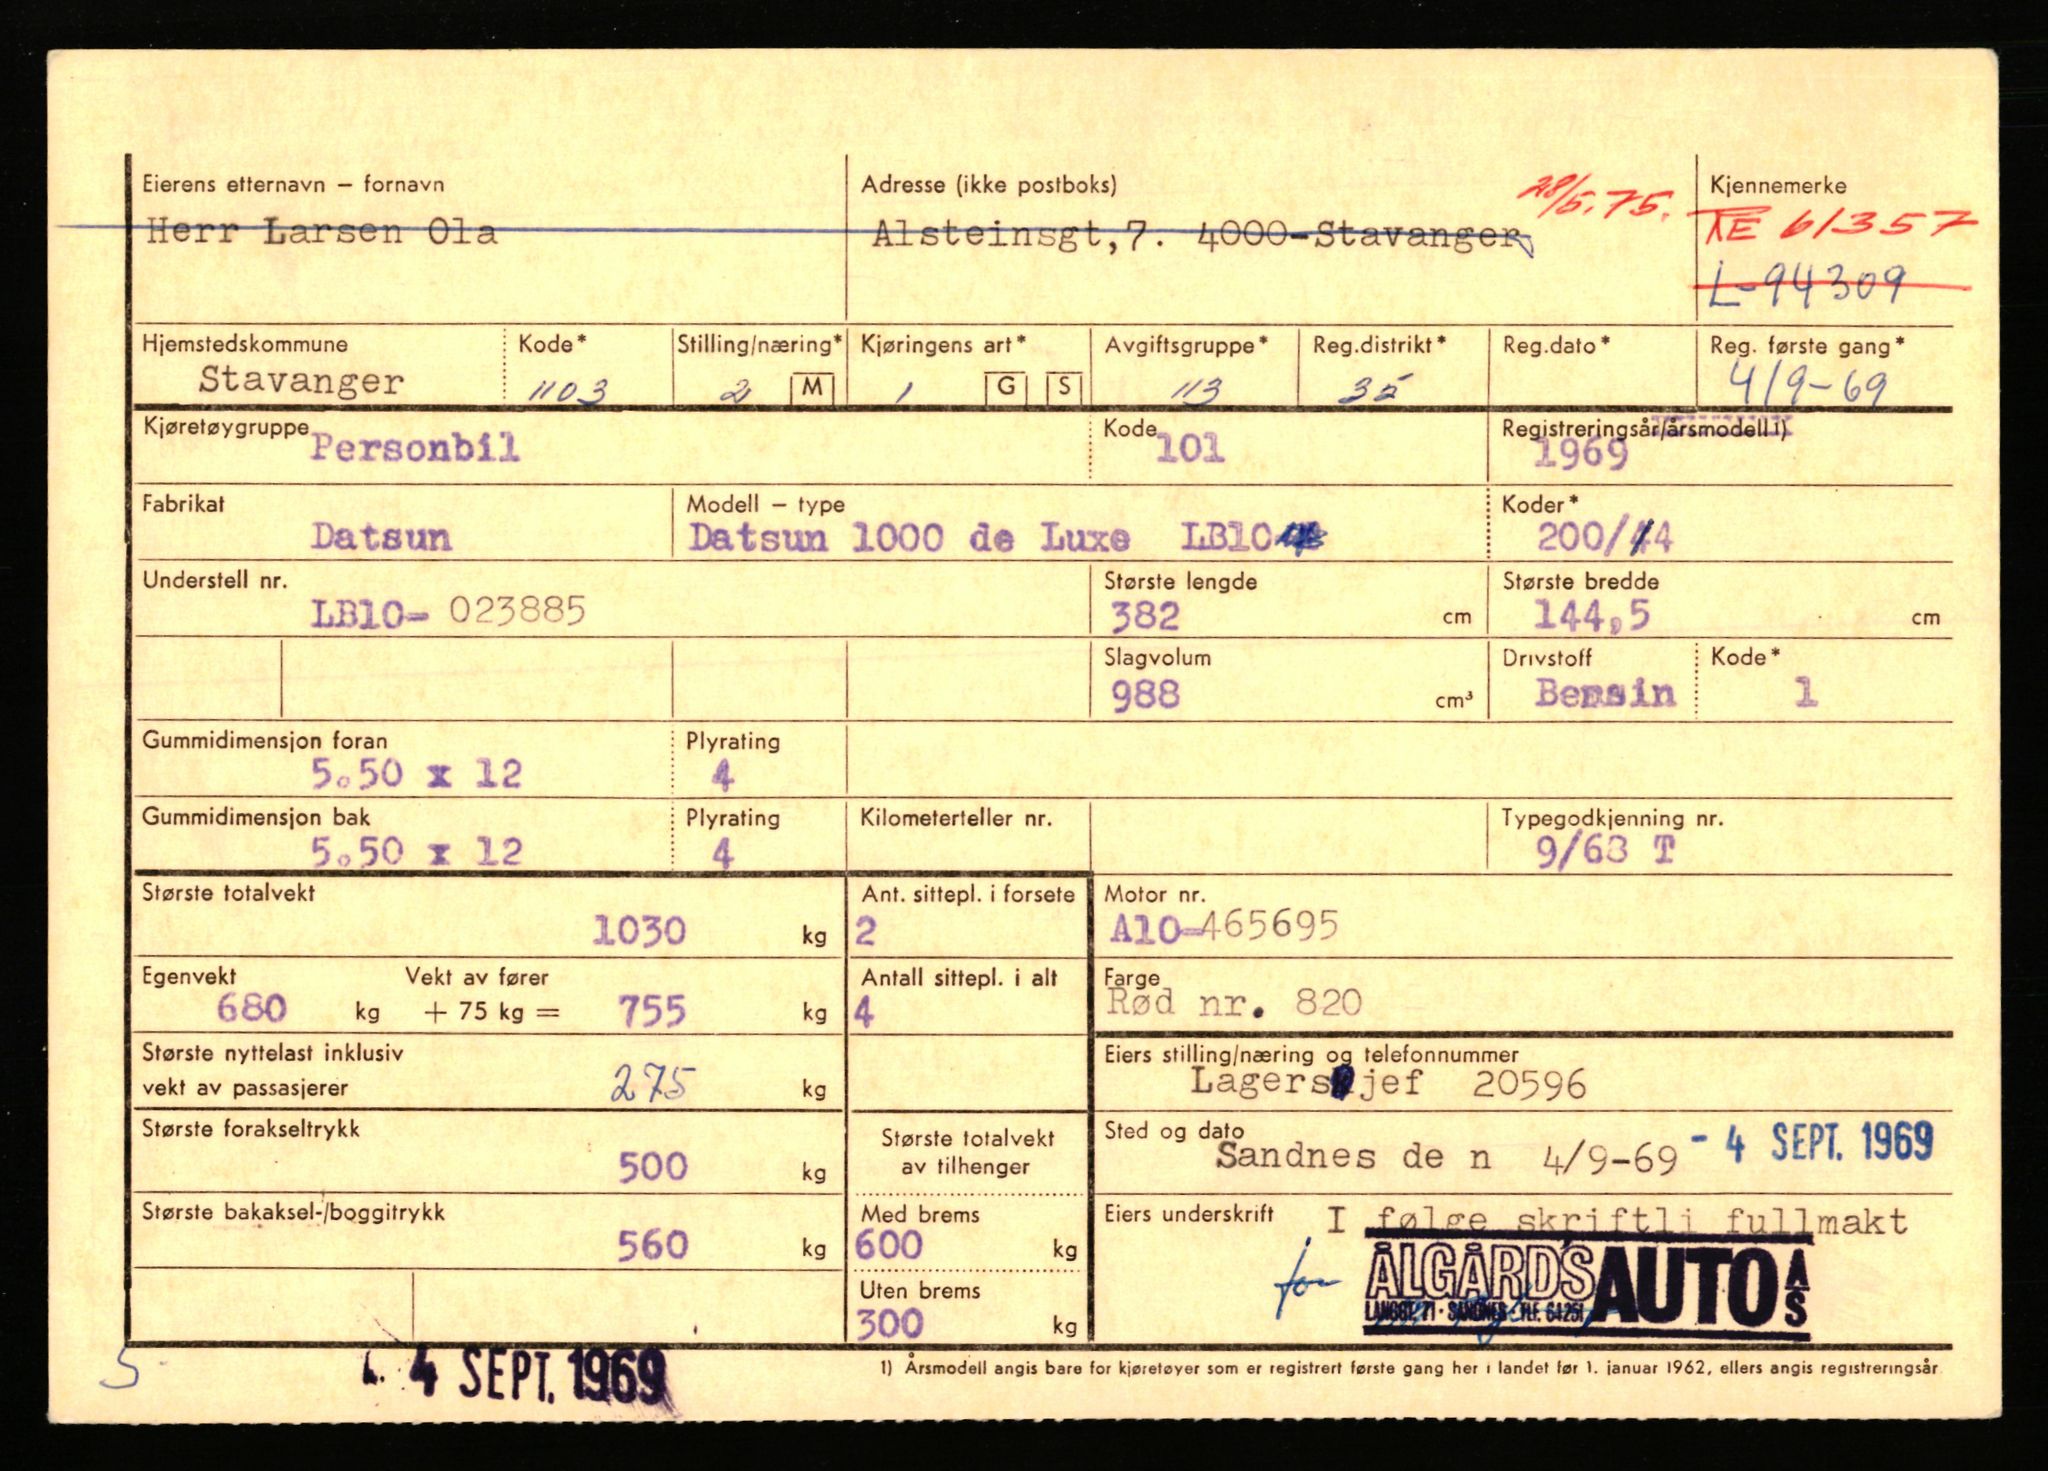 Eierens etternavn – fornavn
Herr Larsen Ola
Adresse (ikke postboks)
Alsteinsgt,7. 4000-Stavanger
28/5.75.
Kjennemerke
RE 61357
L-94309
Hjemstedskommune
Stavanger
Kode*
1103
Stilling/næring*
2 M
Kjøringens art*
1 G S
Avgiftsgruppe*
113
Reg.distrikt*
35
Reg.dato*
Reg. første gang*
4/9-69
Kjøretøygruppe
Personbil
Kode
101
Registreringsår/årsmodell 1)
1969
Fabrikat
Datsun
Modell – type
Datsun 1000 de Luxe LB10
Koder*
200/44
Understell nr.
LB10- 023885
Største lengde
382 cm
Største bredde
144,5 cm
Slagvolum
988 cm³
Drivstoff
Bensin
Kode*
1
Gummidimensjon foran
5.50 x 12
Plyrating
4
Gummidimensjon bak
5.50 x 12
Plyrating
4
Kilometerteller nr.
Typegodkjenning nr.
9/68 T
Største totalvekt
1030 kg
Ant. sittepl. i forsete
2
Motor nr.
A10-465695
Egenvekt
680 kg
Vekt av fører
+ 75 kg = 755 kg
Antall sittepl. i alt
4
Farge
Rød nr. 820
Største nyttelast inklusiv
vekt av passasjerer 275 kg
Eiers stilling/næring og telefonnummer
Lagersjef 20596
Største forakseltrykk
500 kg
Største totalvekt
av tilhenger
Sted og dato
Sandnes de n 4/9-69
- 4 SEPT. 1969
Største bakaksel-/boggitrykk
560 kg
Med brems
600 kg
Uten brems
300 kg
Eiers underskrift
I følge skriftli fullmakt
for
ÅLGÅRDS AUTO A/S
LANGGT. 71 · SANDNES · TLF. 64251
5
4 SEPT. 1969
1) Årsmodell angis bare for kjøretøyer som er registrert første gang her i landet før 1. januar 1962, ellers angis registreringsår